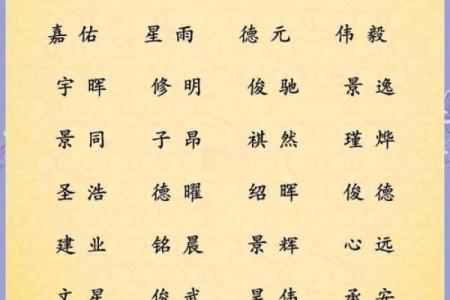 嘉佑 星雨 德元 伟毅
宇晖 修明 俊驰 景逸
景同 子昂 祺然 瑾烨
圣浩 德曜 绍晖 俊德
建业 铭晨 景辉 心远
文星 俊武 昊伟 承安